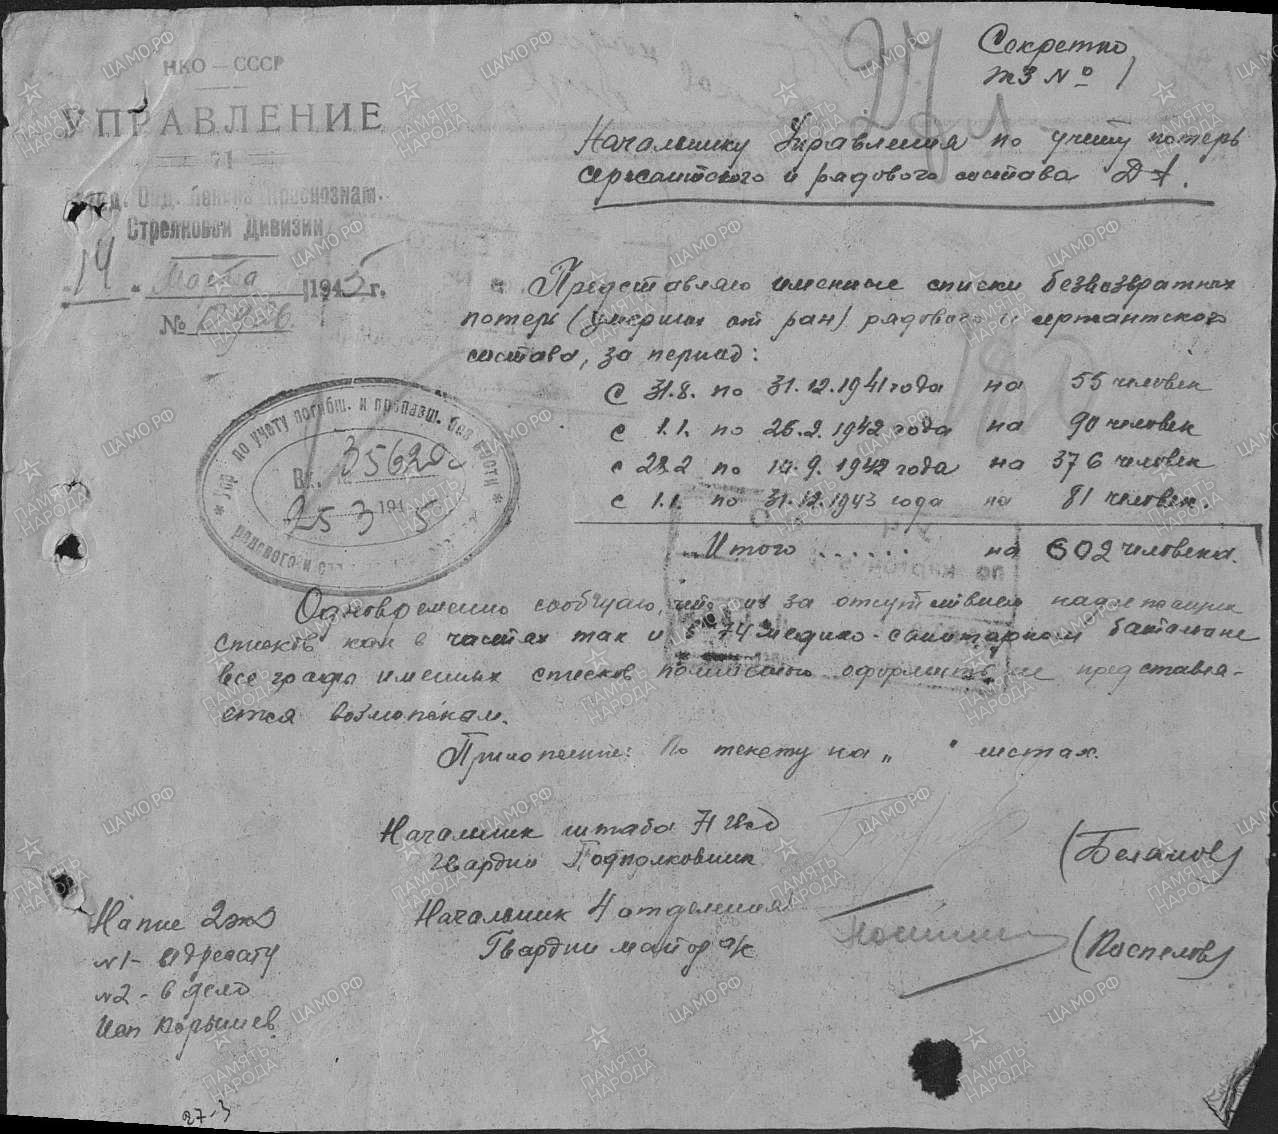 Секретно
экз № 1
НКО — СССР
УПРАВЛЕНИЕ
71
Гвард. Орд. Ленина Краснознам.
Стрелковой Дивизии
"14" Марта 1945 г.
№
Начальнику Управления по учету потерь
сержантского и рядового состава ДА.
Представляю именные списки безвозвратных
потерь (умерших от ран) рядового и сержантского
состава, за период:
С 31.8. по 31.12.1941 года на 55 человек
с 1.1. по 26.2.1942 года на 90 человек
с 28.2 по 10.9.1942 года на 376 человек
с 1.1. по 31.12.1943 года на 81 человек.
Итого ...... на 602 человека.
Упр. по учету погибш. и пропавш. без вести
Вх. 35620
25 3 1945
рядового и
Одновременно сообщаю, что из за отсутствием надлежащих
списков как в частях так и в 74 медико-санитарном батальоне
все графы именных списков полностью оформить не представля-
ется возможным.
Приложение: По тексту на " " листах.
Начальник штаба 71 гвсд
Гвардии Подполковник (Белямов)
Начальник 4 отделения
Гвардии майор а/с (Поспелов)
Напис 2экз
№1 - адресату
№2 - в дело
Исп Корышев
27-3
ЦАМО.РФ
ПАМЯТЬ НАРОДА